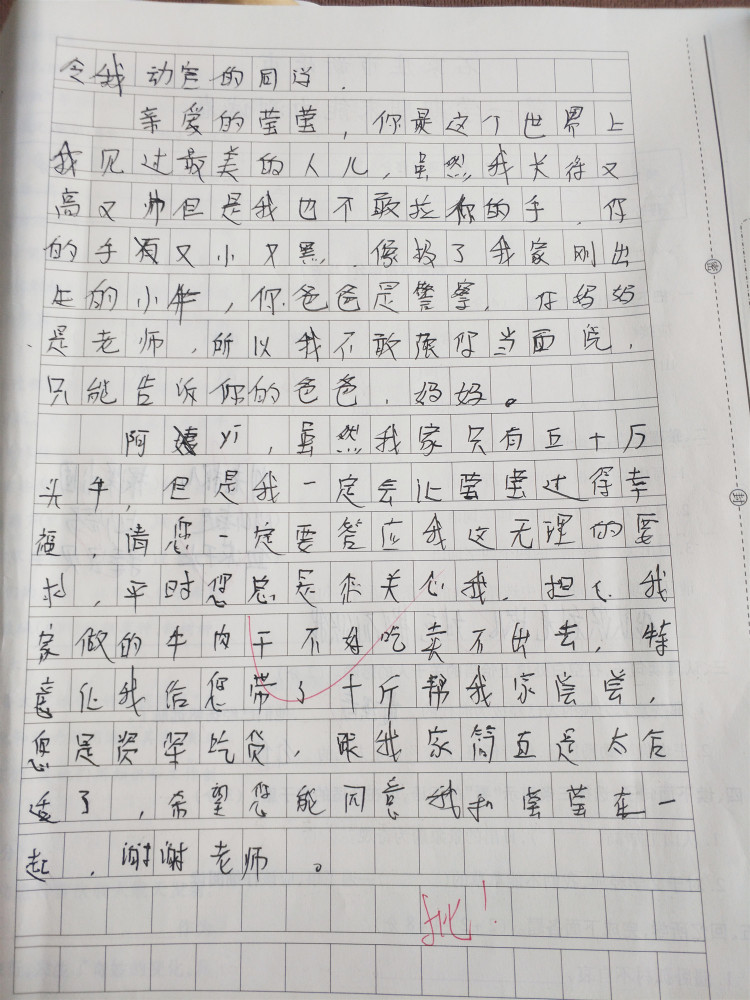 令我动容的同学.
亲爱的莹莹,你是这个世界上
我见过最美的人儿,虽然我长得又
高又帅但是我也不敢拉你的手,你
的手又小又黑.像极了我家刚出
生的小牛,你爸爸是警察,你妈妈
是老师,所以我不敢跟你当面说,
只能告诉你的爸爸,妈妈。
阿yí,虽然我家只有五十万
头牛,但是我一定会让莹莹过得幸
福,请您一定要答应我这无理的要
求,平时您总是来关心我,担心我
家做的牛肉干不好吃卖不出去,特
意让我给您带了十斤帮我家尝尝,
您是资深吃货,跟我家简直是太合
适了,希望您能同意我和莹莹在一
起,谢谢老师。
批!
密
封